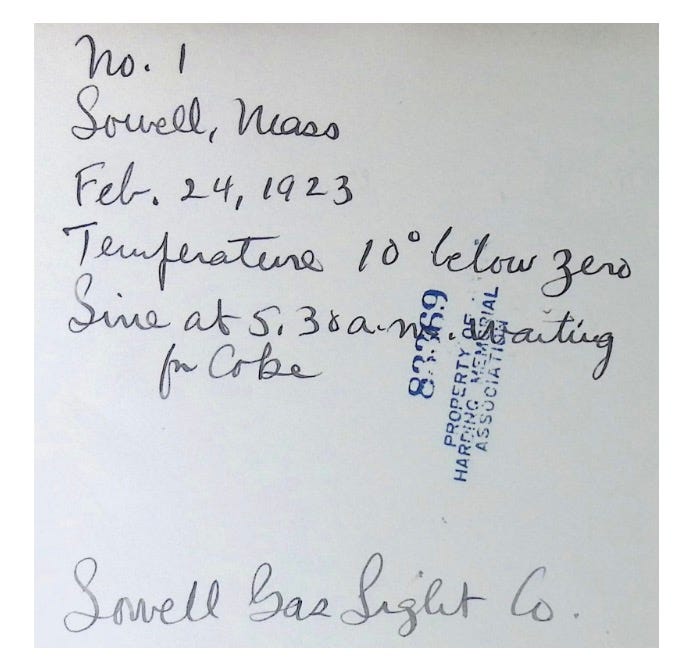 No. 1
Lowell, Mass
Feb. 24, 1923
Temperature 10° below zero
Line at 5.30 a.m. waiting
for Coke
83369
PROPERTY OF
HARDING MEMORIAL
ASSOCIATION
Lowell Gas Light Co.